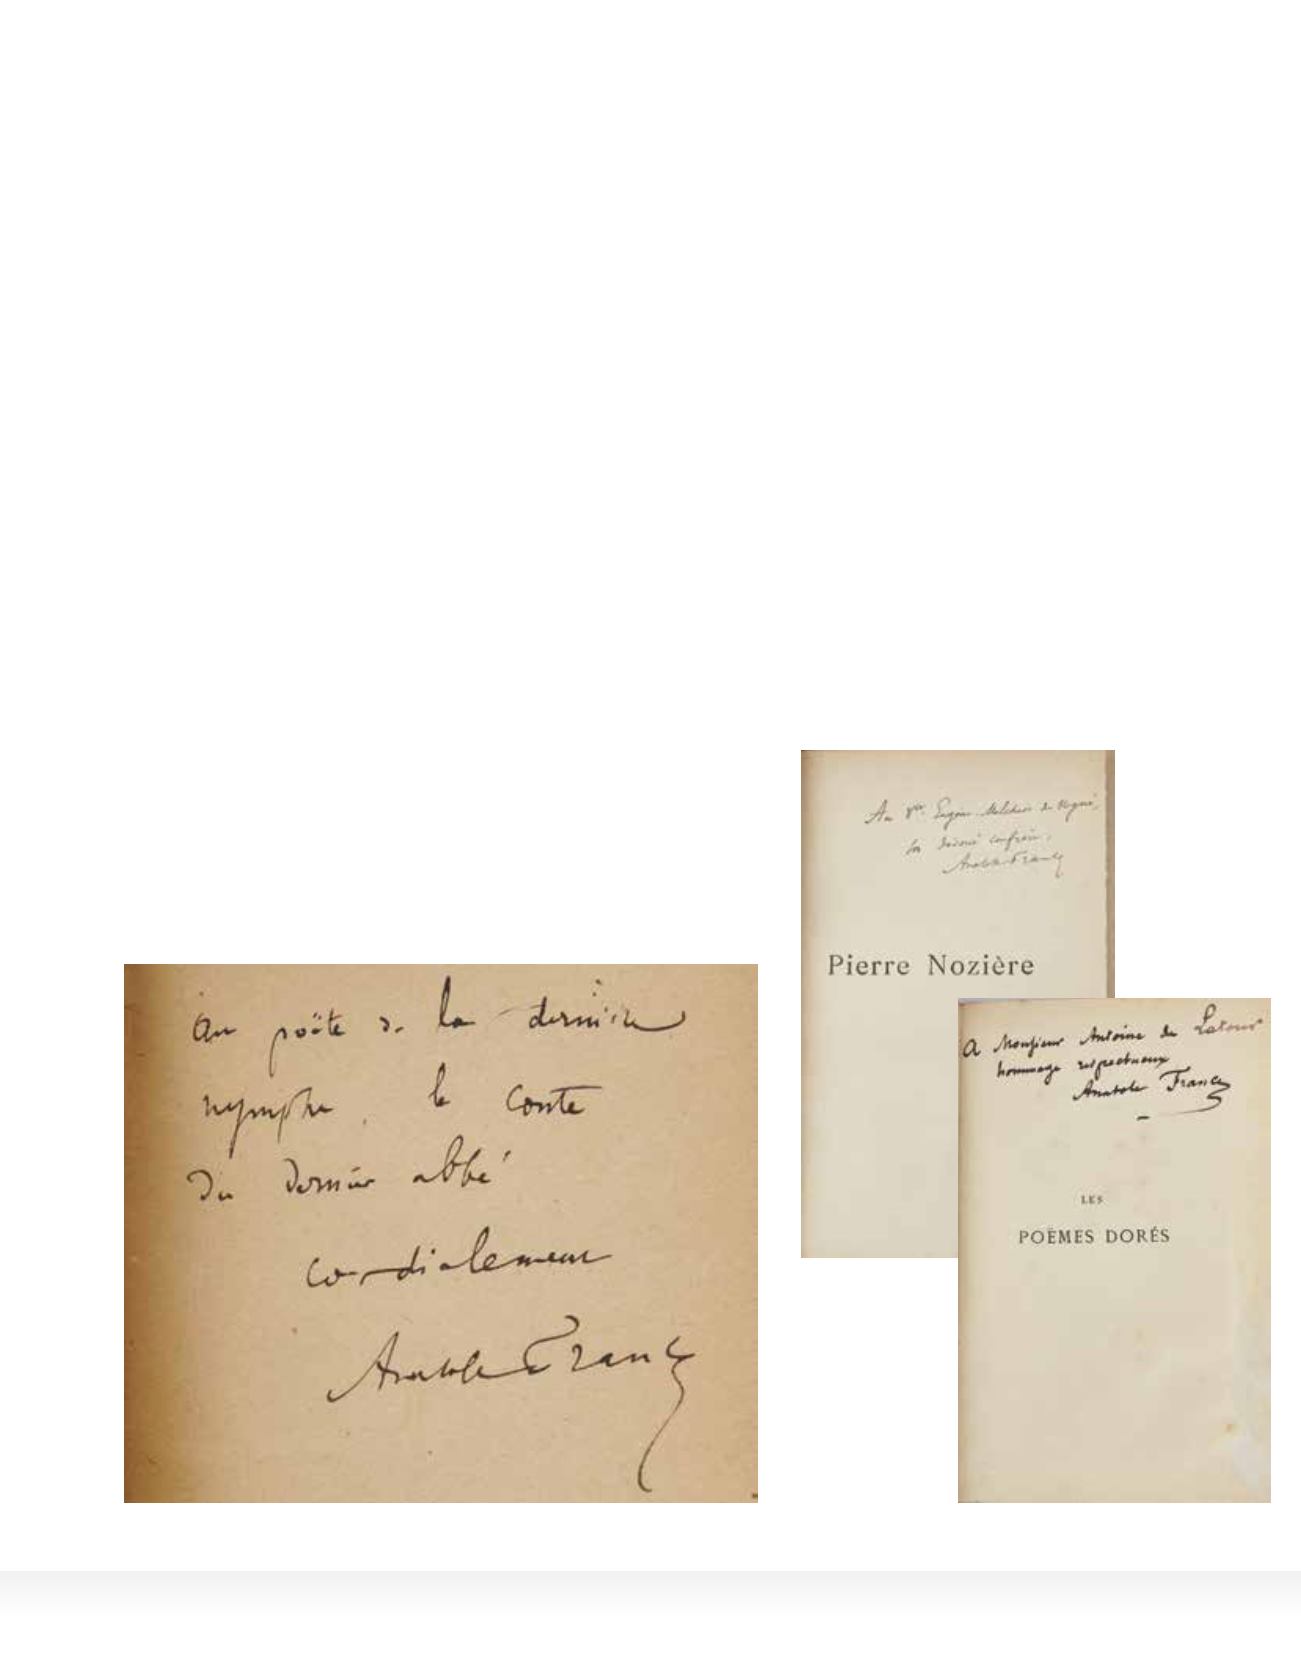 Au poëte de la dernière
nymphe, le conte
du dernier abbé
cordialement
Anatole France
Au Vte Eugène Melchior de Vogüé,
son dévoué confrère.
Anatole France
Pierre Nozière
A Monsieur Antoine de Latour
hommage respectueux
Anatole France
LES
POËMES DORÉS